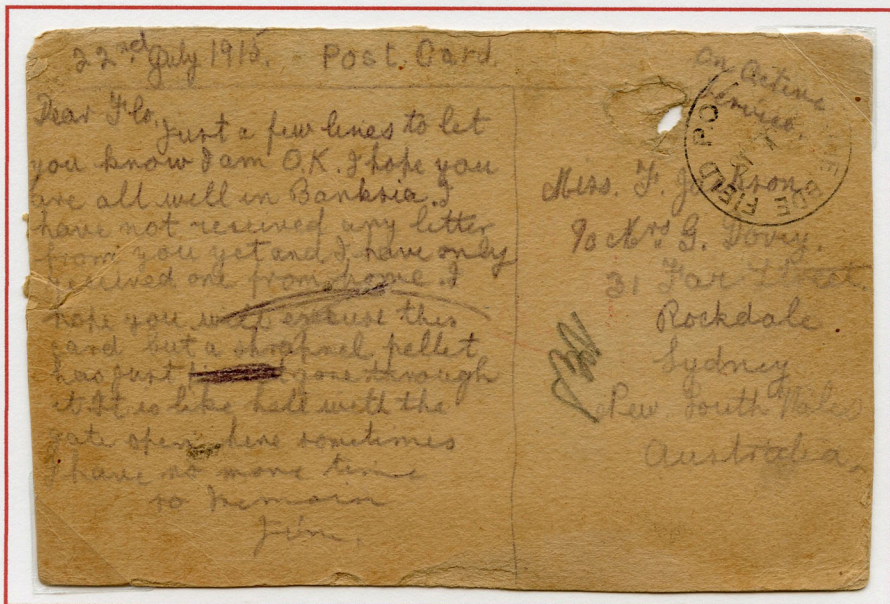 22nd July 1915. - Post Card.
Dear Flo,
Just a few lines to let
you know I am O.K. I hope you
are all well in Banksia. I
have not received any letter
from you yet and I have only
received one from home. I
hope you will excuse this
card but a shrapnel pellet
has just gone through
it It is like hell with the
gate open here sometimes
I have no more time
so Remain
Jim.
On Active
Service.
FIELD P.O.
Miss. F. Jackson
c/o Mrs G. Dovey.
31 Far Street.
Rockdale
Sydney
New South Wales
Australia.